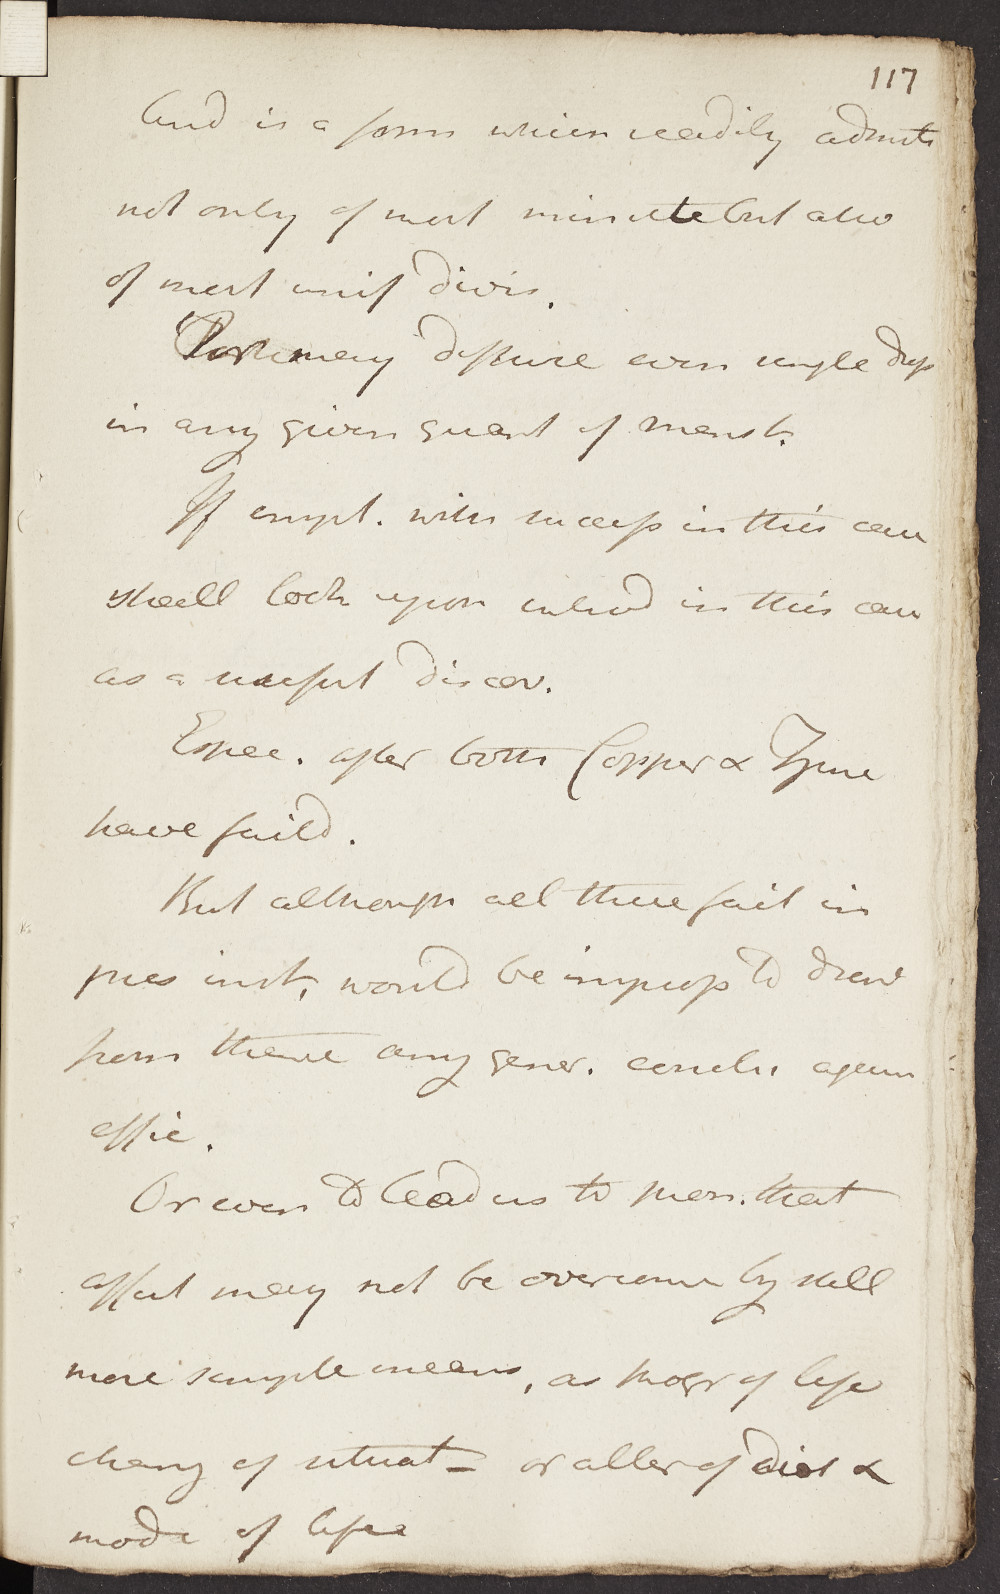 117
And is a form which readily admits
not only of most minute but also
of most unif divis.
For may diffuse even single drop
in any given quant of menst.
If empt. with success in this case
shall look upon introd in this case
as a useful discov.
Espec. after both Copper & Zinc
have faild.
But although all these fail in
pres inst, would be improp to draw
from thence any gener. conclu again
effic.
Or even to lead us to pron. that
affect may not be overcome by still
more simple means, as progr of life
chang of situat - or alter of diet &
mode of life